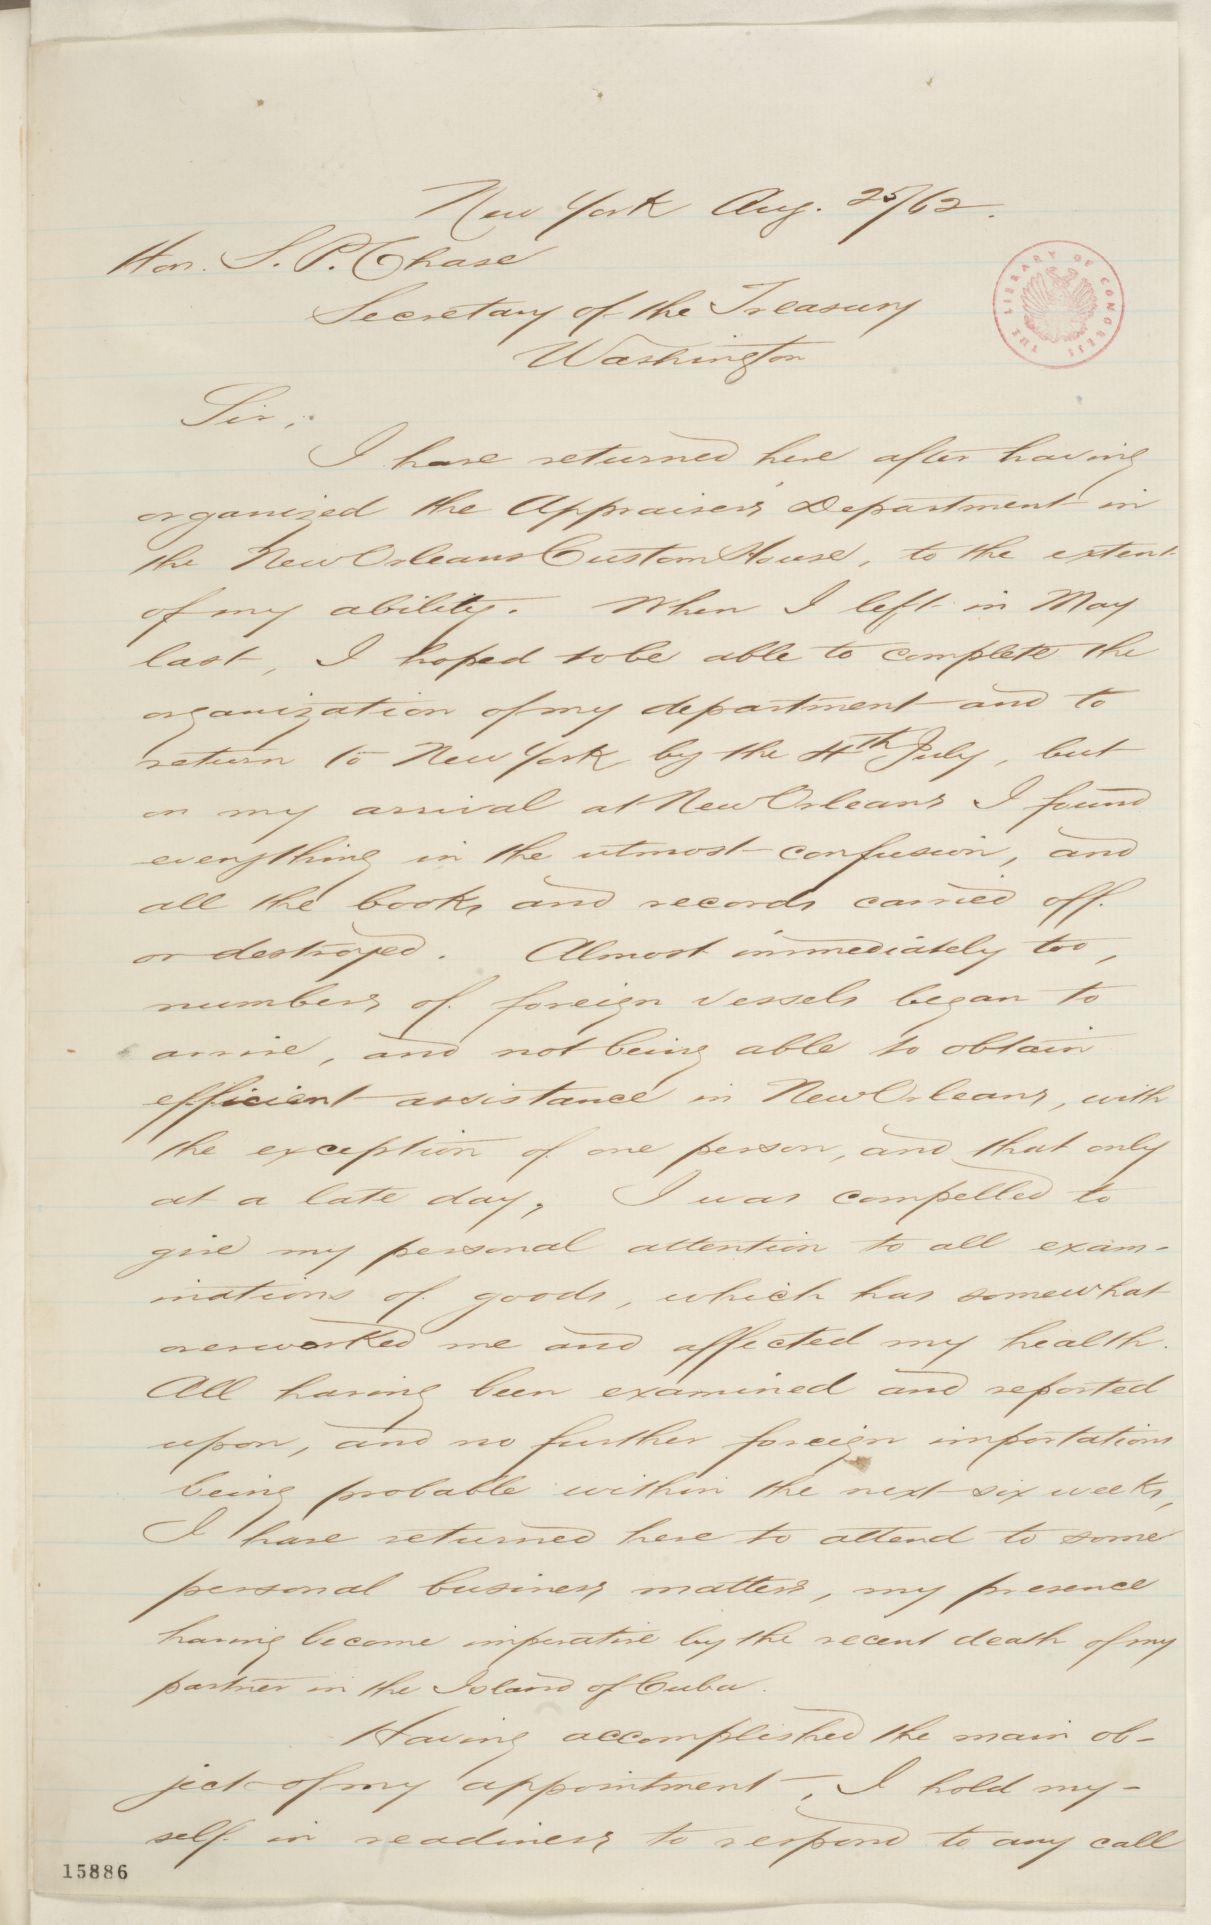 New York Aug. 25/62.
Hon. S. P. Chase
Secretary of the Treasury
Washington
THE LIBRARY OF CONGRESS
Sir,
I have returned here after having
organized the Appraisers' Department in
the New Orleans Custom House, to the extent
of my ability. When I left in May
last, I hoped to be able to complete the
organization of my department and to
return to New York by the 4th July, but
on my arrival at New Orleans I found
everything in the utmost confusion, and
all the books and records carried off
or destroyed. Almost immediately too,
numbers of foreign vessels began to
arrive, and not being able to obtain
efficient assistance in New Orleans, with
the exception of one person, and that only
at a late day, I was compelled to
give my personal attention to all exam-
inations of goods, which has somewhat
overworked me and affected my health.
All having been examined and reported
upon, and no further foreign importations
being probable within the next six weeks,
I have returned here to attend to some
personal business matters, my presence
having become imperative by the recent death of my
partner in the Island of Cuba.
Having accomplished the main ob-
ject of my appointment, I hold my-
self in readiness to respond to any call
15886